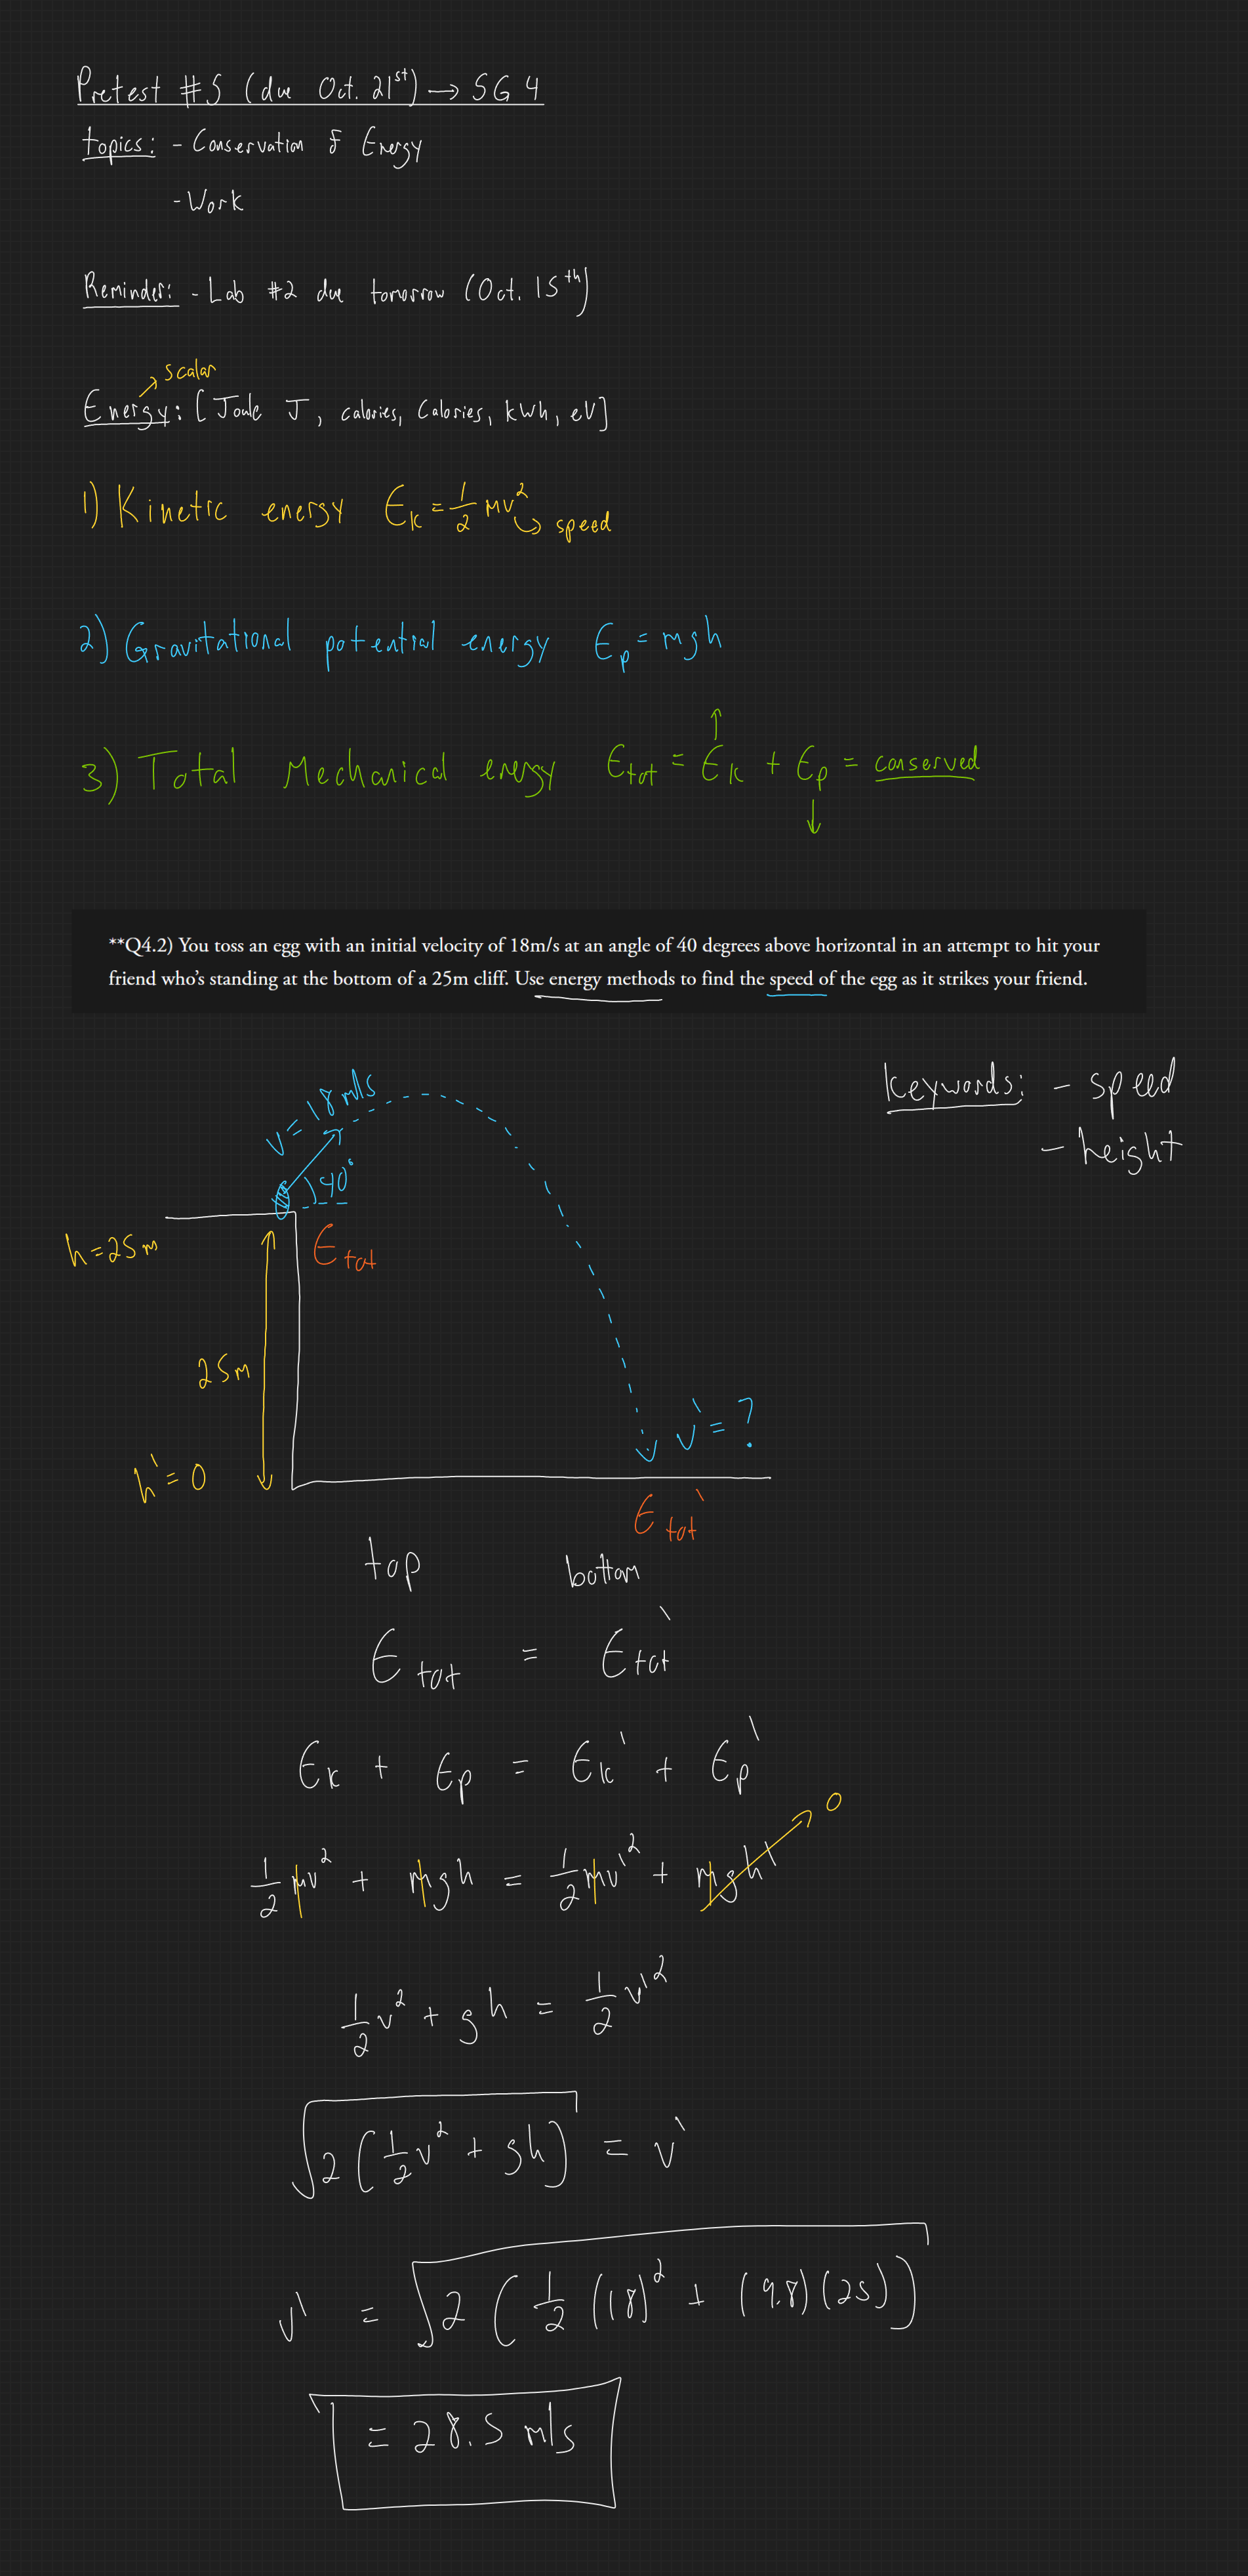 Pretest #5 (due Oct. 21st) → SG 4
topics: - Conservation of Energy
- Work
Reminder: - Lab #2 due tomorrow (Oct. 15th)
→ scalar
Energy: [Joule J, calories, Calories, kWh, eV]
1) Kinetic energy Ek = 1/2 mv²
↳ speed
2) Gravitational potential energy Ep = mgh
↑
3) Total Mechanical energy Etot = Ek + Ep = conserved
↓
**Q4.2) You toss an egg with an initial velocity of 18m/s at an angle of 40 degrees above horizontal in an attempt to hit your
friend who's standing at the bottom of a 25m cliff. Use energy methods to find the speed of the egg as it strikes your friend.
Keywords: - speed
- height
v = 18 m/s
40°
h = 25 m
Etot
25m
v' = ?
h' = 0
Etot'
top bottom
Etot = Etot'
Ek + Ep = Ek' + Ep'
0
1/2 mv² + mgh = 1/2 mv'² + mgh'
1/2 v² + gh = 1/2 v'²
√2(1/2 v² + gh) = v'
v' = √2(1/2 (18)² + (9.8)(25))
= 28.5 m/s